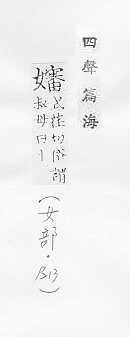 四聲篇海
嬸
式荏切俗謂
叔母曰丨
(女部·B13)